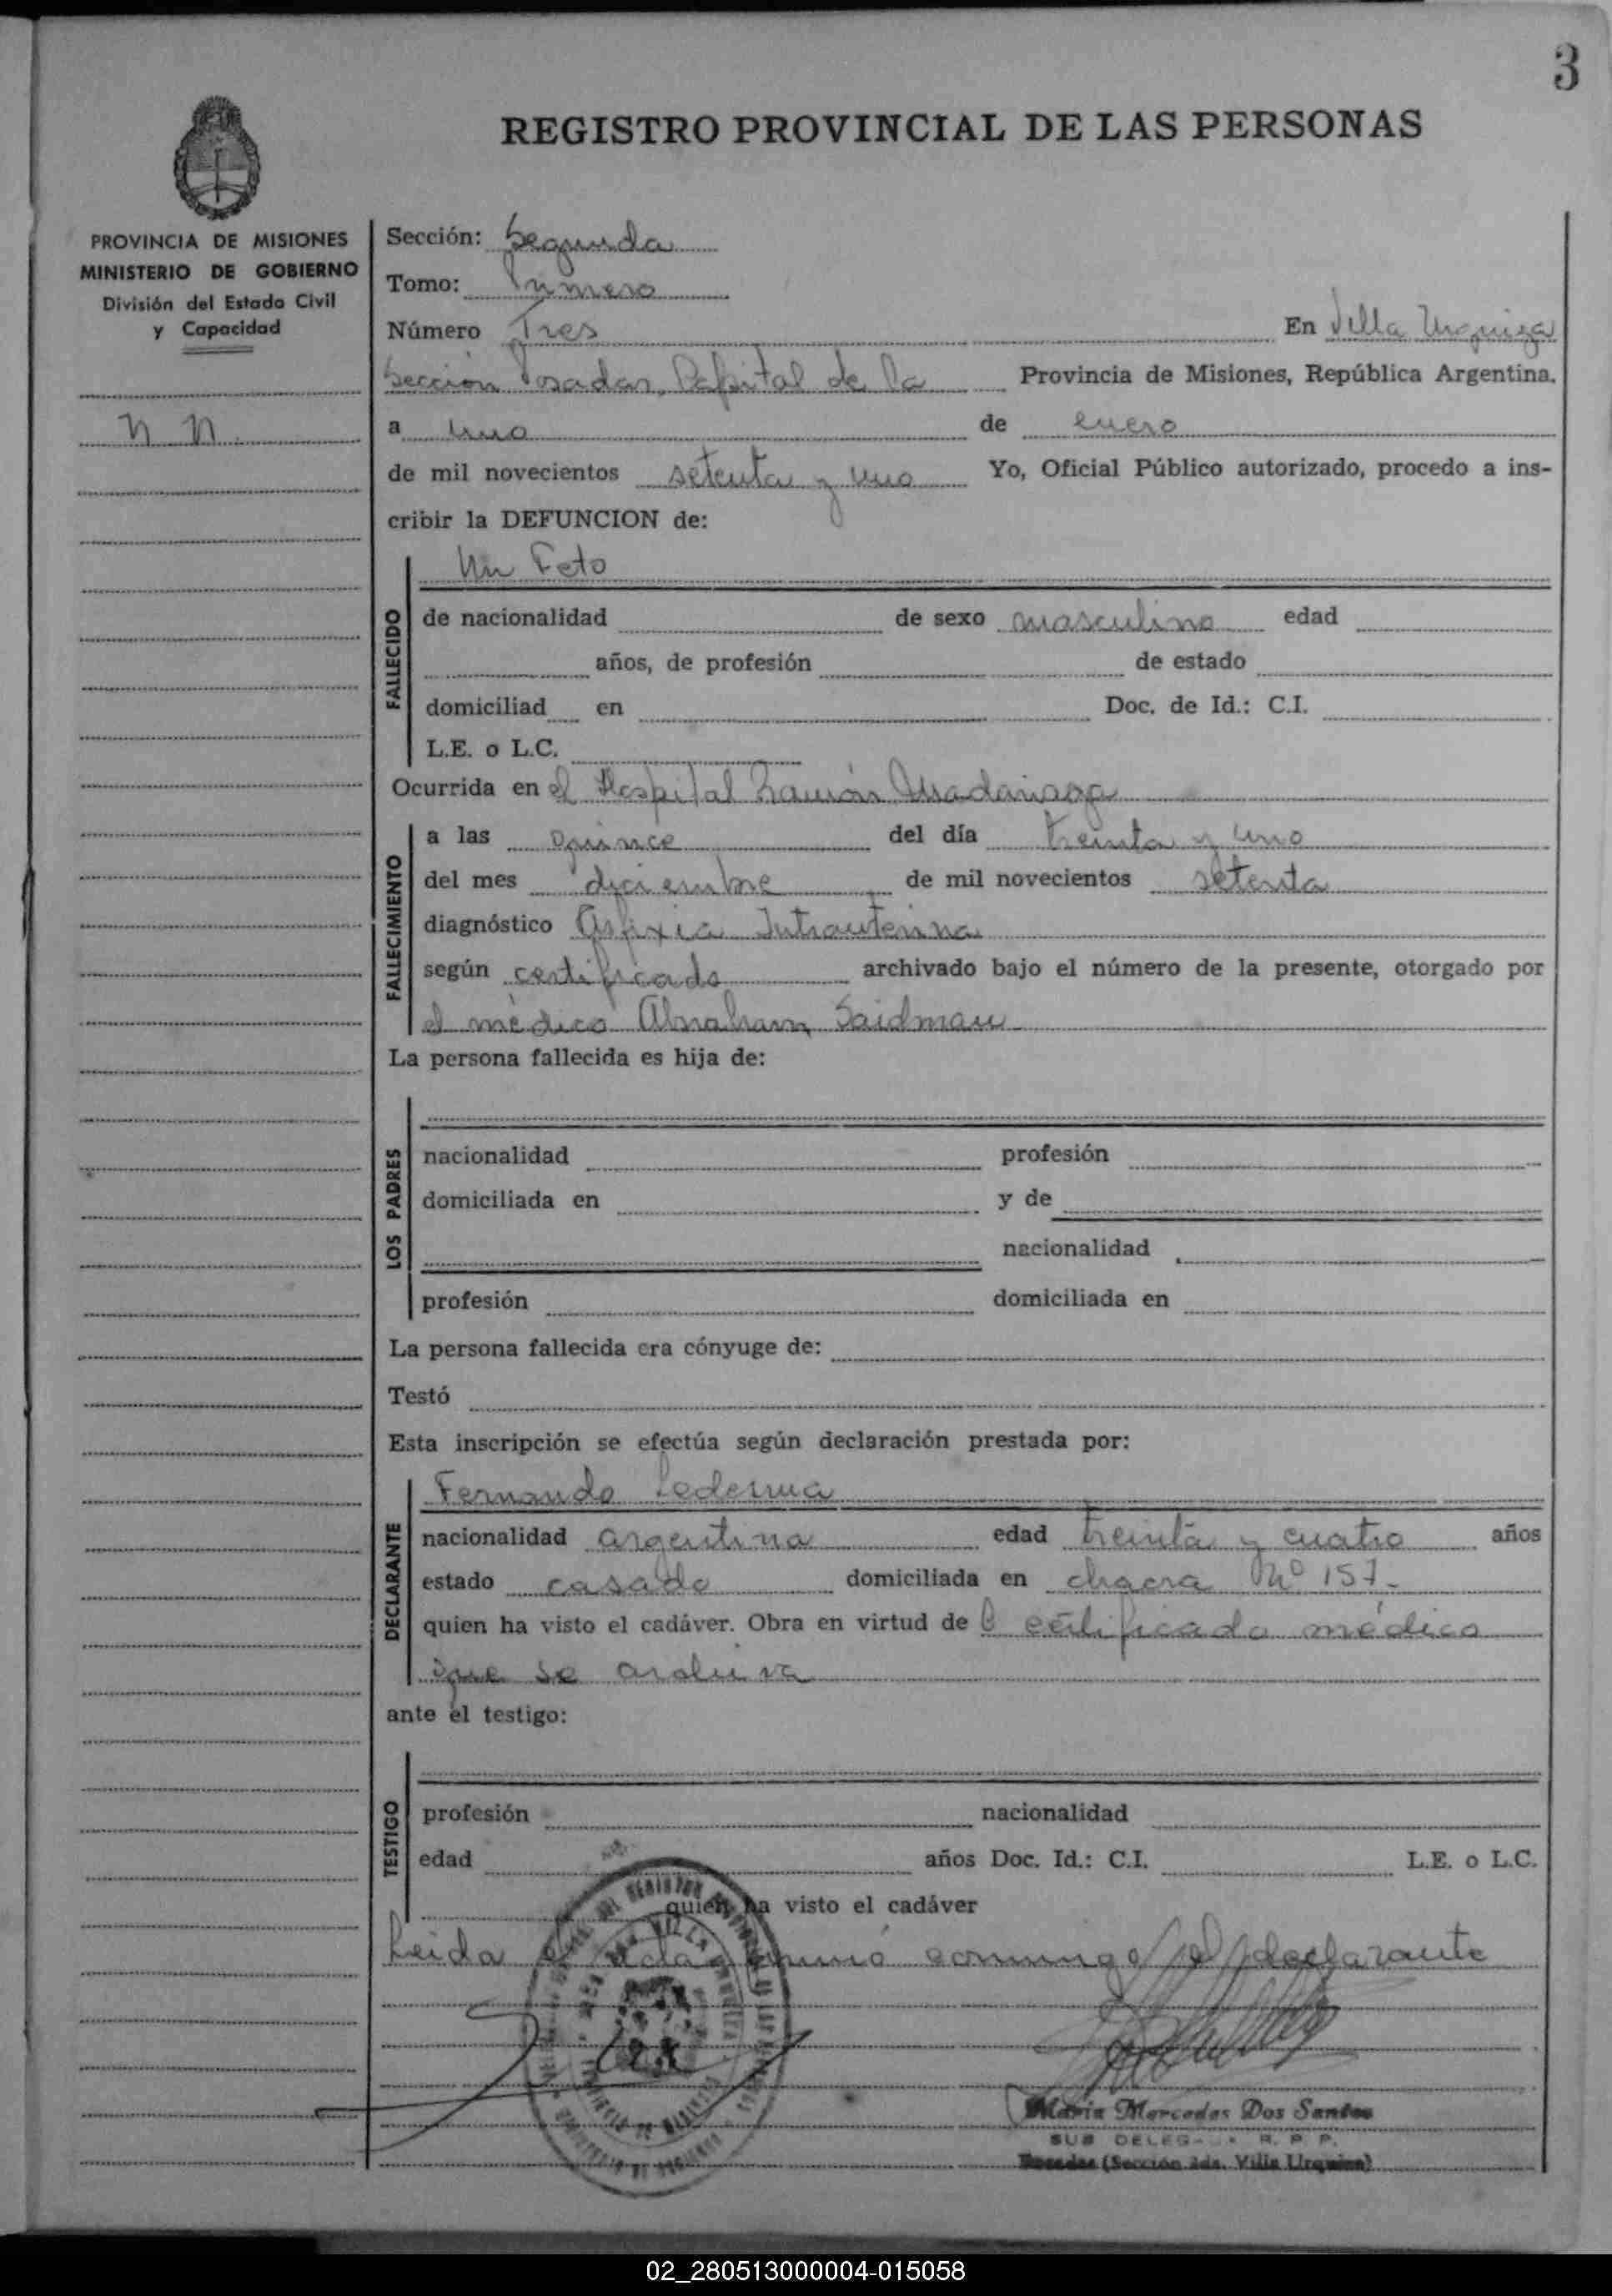 3
REGISTRO PROVINCIAL DE LAS PERSONAS
PROVINCIA DE MISIONES
MINISTERIO DE GOBIERNO
División del Estado Civil
y Capacidad
N N
Sección: Segunda
Tomo: Primero
Número Tres En Villa Urquiza
Sección Posadas, Capital de la Provincia de Misiones, República Argentina.
a uno de enero
de mil novecientos setenta y uno Yo, Oficial Público autorizado, procedo a ins-
cribir la DEFUNCION de:
Un Feto
FALLECIDO
de nacionalidad de sexo masculino edad
años, de profesión de estado
domiciliad en Doc. de Id.: C.I.
L.E. o L.C.
Ocurrida en el Hospital Ramón Madariaga
FALLECIMIENTO
a las quince del día treinta y uno
del mes diciembre de mil novecientos setenta
diagnóstico Asfixia Intrauterina
según certificado archivado bajo el número de la presente, otorgado por
el médico Abraham Saidman
La persona fallecida es hija de:
LOS PADRES
nacionalidad profesión
domiciliada en y de
nacionalidad
profesión domiciliada en
La persona fallecida era cónyuge de:
Testó
Esta inscripción se efectúa según declaración prestada por:
DECLARANTE
Fernando Ledesma
nacionalidad argentina edad treinta y cuatro años
estado casado domiciliada en chacra Nº 157-
quien ha visto el cadáver. Obra en virtud de certificado médico
que se archiva
ante el testigo:
TESTIGO
profesión nacionalidad
edad años Doc. Id.: C.I. L.E. o L.C.
quien ha visto el cadáver
Leida el acta firmó conmigo el declarante
Maria Mercedes Dos Santos
SUB DELEG R. P. P.
Posadas (Sección 2da. Villa Urquiza)
02_280513000004-015058